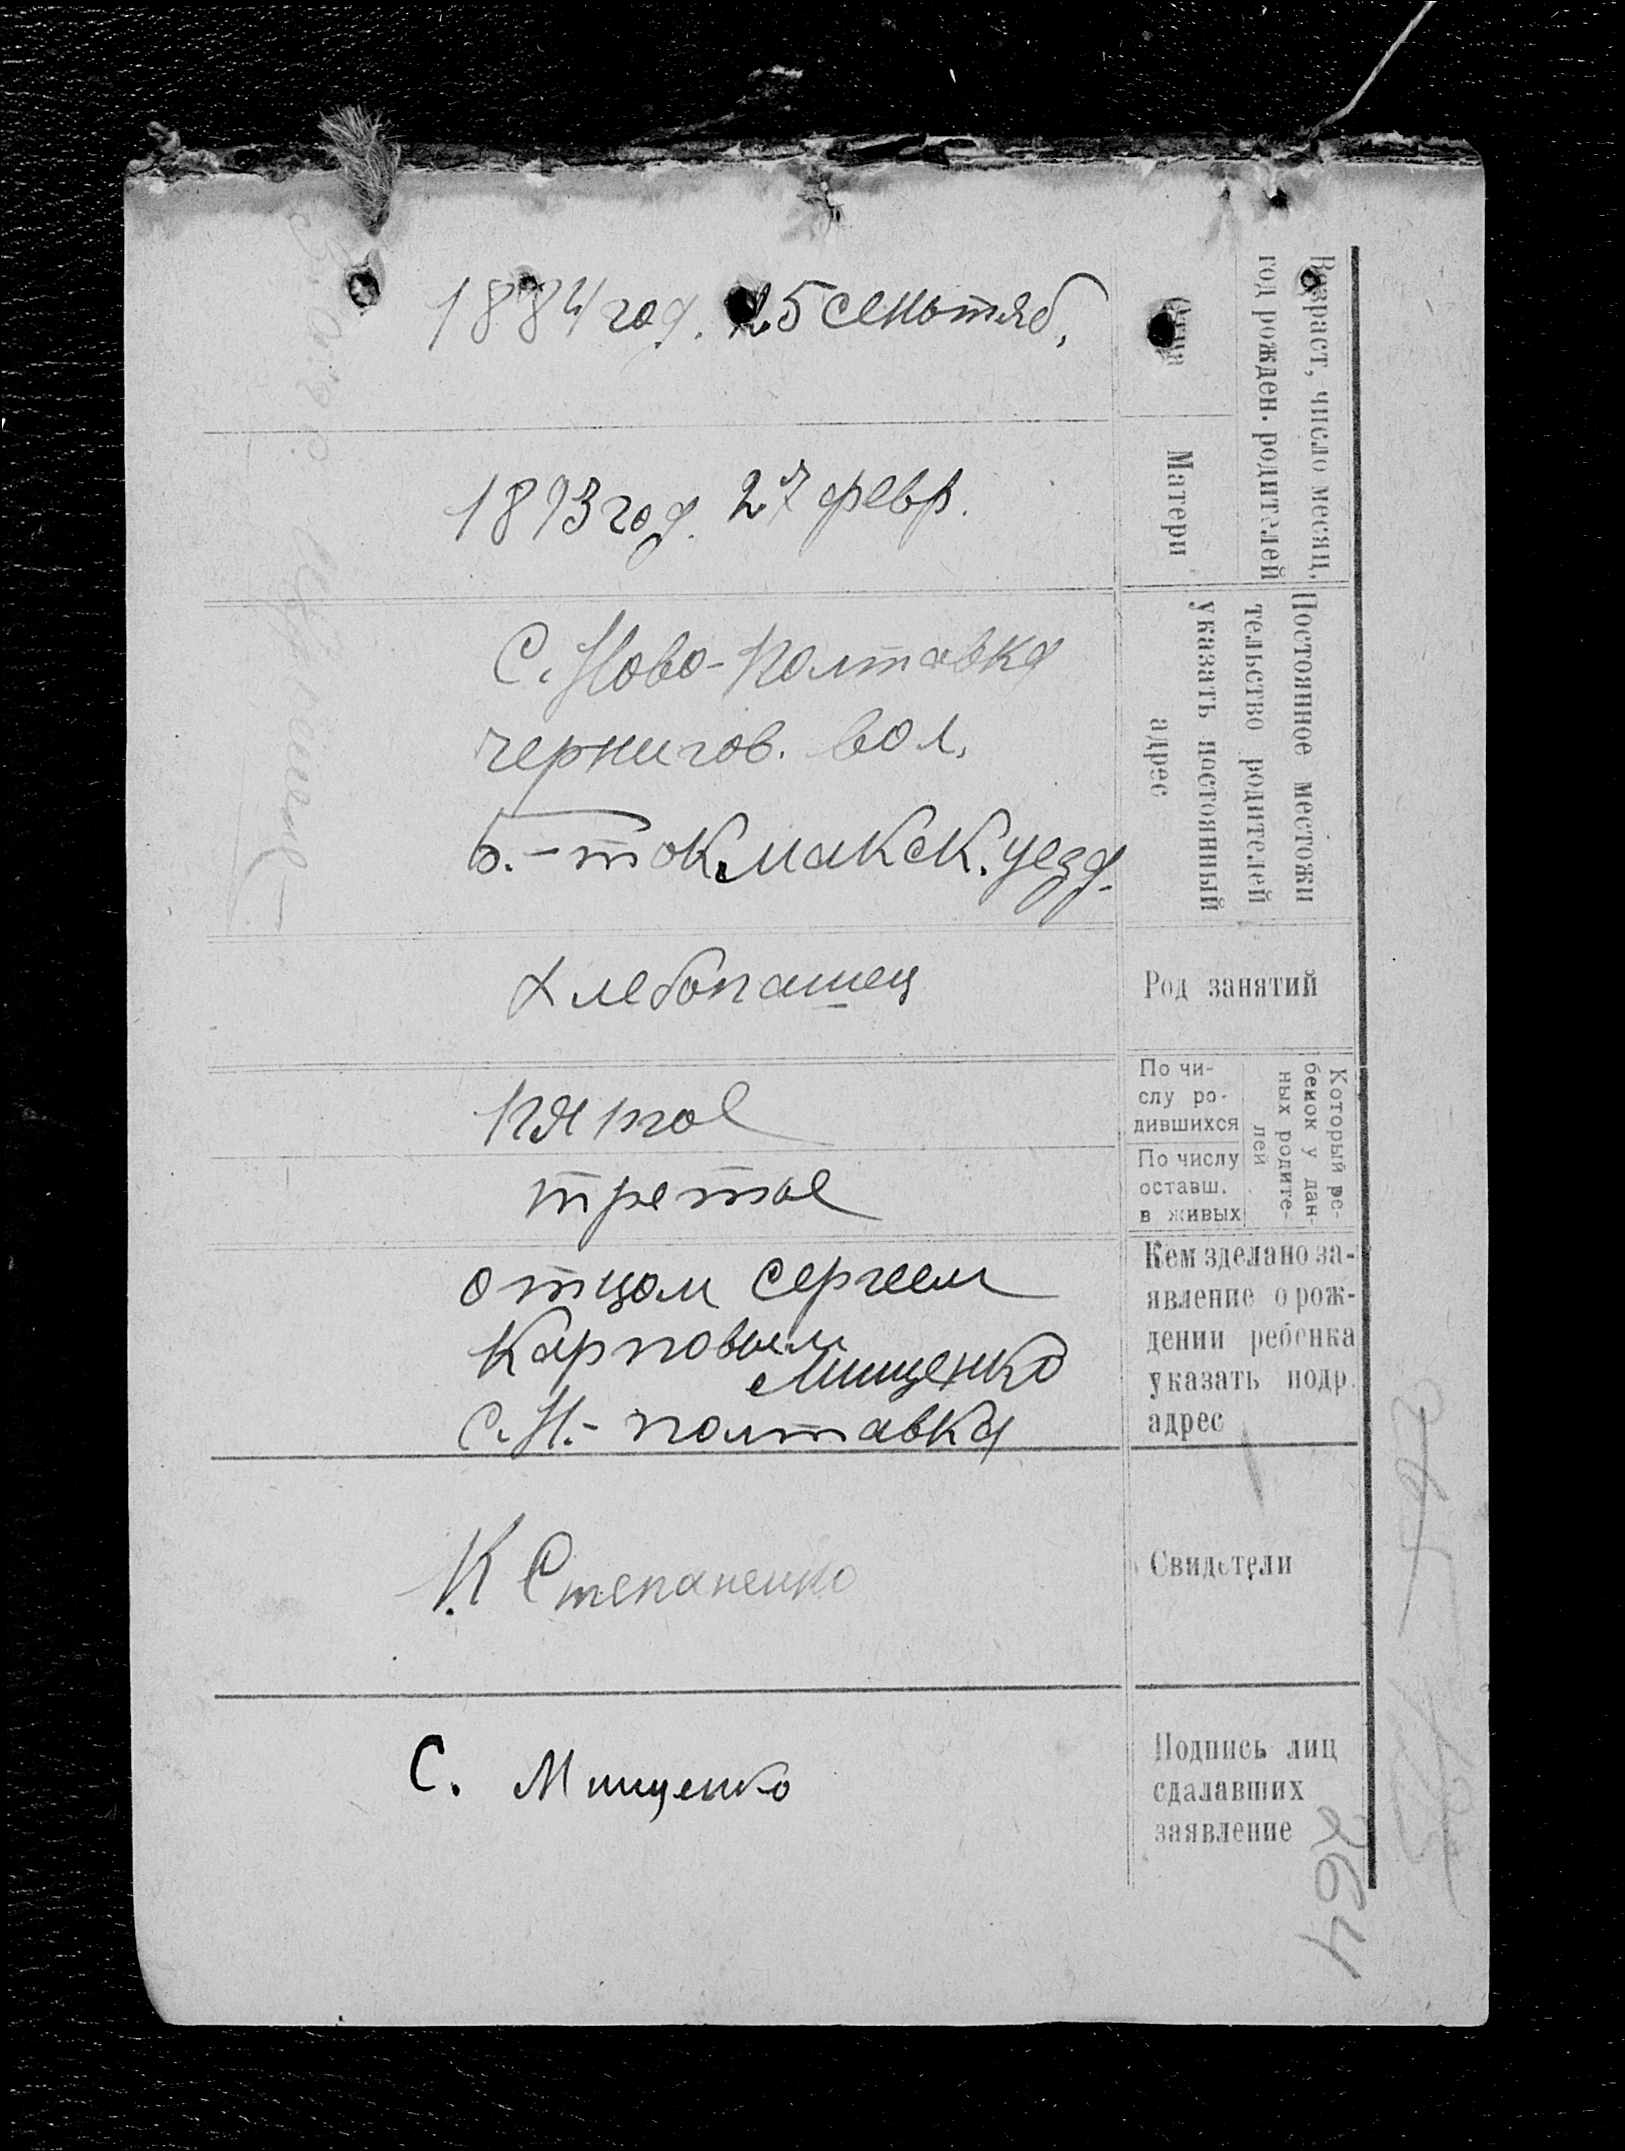 Возраст, число месяц,
год рожден. родителей
Отца
1884 год. 25 сеньтяб.
Матери
1893 год. 27 февр.
Постоянное местожи
тельство родителей
указать постоянный
адрес
С. Ново-Полтавка
чернигов. вол.
Б.-токмакск. уезд.
Род занятий
Хлебопашец
Который ре-
бенок у дан-
ных родите-
лей
По чи-
слу ро-
дившихся
пятое
По числу
оставш.
в живых
третое
Кем зделано за-
явление о рож-
дении ребенка
указать подр.
адрес
отцом Сергеем
Карповым
Мищенко
С. Н.-полтавка
Свидетели
К Степаненко
Подпись лиц
сдалавших
заявление
С. Мищенко
264